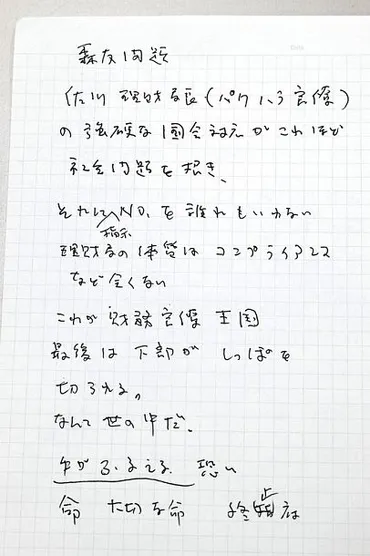 森友問題
佐川理財局長(パワハラ官僚)
の強硬な国会対応がこれほど
社会問題を招き、
それにNO.を誰れもいわない
指示
理財局の体質はコンプライアンス
など全くない
これが財務官僚王国
最後は下部がしっぽを
切られる。
なんて世の中だ。
手がふるえる。恐い
命 大切な命 終止府